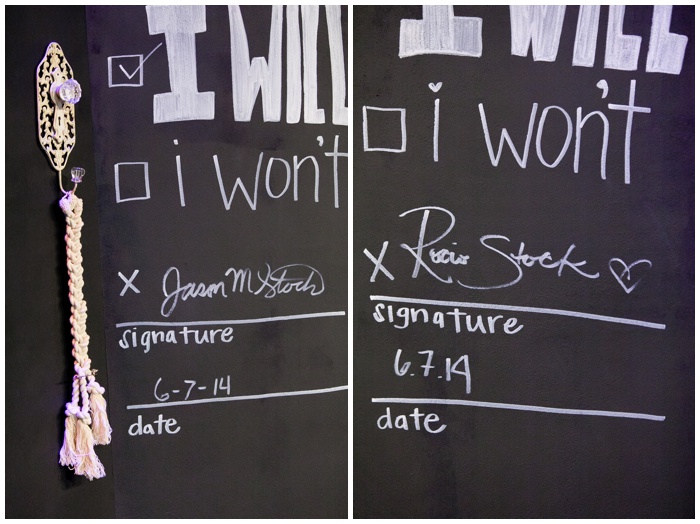 I WILL
i won't
x Jason M Stock
signature
6-7-14
date
I WILL
i won't
x Rocio Stock
signature
6.7.14
date